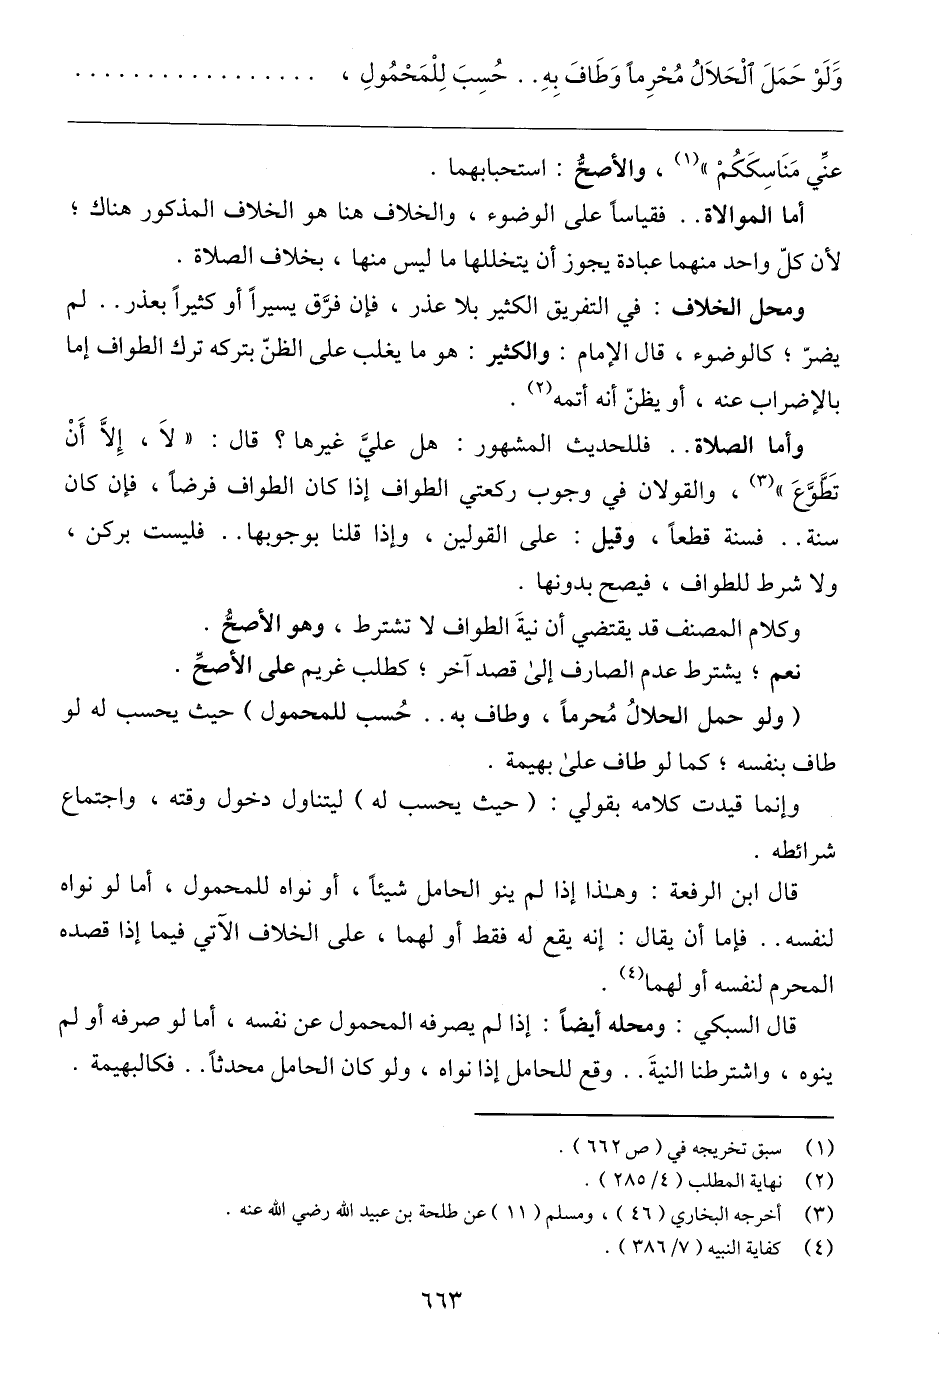 وَلَوْ حَمَلَ ٱلْحَلاَلُ مُحْرِماً وَطَافَ بِهِ.. حُسِبَ لِلْمَحْمُولِ ، . . . . . . . . . . . . . . . . .
عنِّي مَنَاسِكَكُمْ »(١) ، والأصحُّ : استحبابهما .
أما الموالاة.. فقياساً على الوضوء ، والخلاف هنا هو الخلاف المذكور هناك ؛
لأن كلّ واحد منهما عبادة يجوز أن يتخللها ما ليس منها ، بخلاف الصلاة .
ومحل الخلاف : في التفريق الكثير بلا عذر ، فإن فرَّق يسيراً أو كثيراً بعذر.. لم
يضرّ ؛ كالوضوء ، قال الإمام : والكثير : هو ما يغلب على الظنّ بتركه ترك الطواف إما
بالإضراب عنه ، أو يظنّ أنه أتمه(٢) .
وأما الصلاة.. فللحديث المشهور : هل عليَّ غيرها ؟ قال : « لاَ ، إِلاَّ أَنْ
تَطَّوَّعَ »(٣) ، والقولان في وجوب ركعتي الطواف إذا كان الطواف فرضاً ، فإن كان
سنة.. فسنة قطعاً ، وقيل : على القولين ، وإذا قلنا بوجوبها.. فليست بركن ،
ولا شرط للطواف ، فيصح بدونها .
وكلام المصنف قد يقتضي أن نيةَ الطواف لا تشترط ، وهو الأصحُّ .
نعم ؛ يشترط عدم الصارف إلىٰ قصد آخر ؛ كطلب غريم على الأصحِّ .
( ولو حمل الحلالُ مُحرماً ، وطاف به.. حُسب للمحمول ) حيث يحسب له لو
طاف بنفسه ؛ كما لو طاف علىٰ بهيمة .
وإنما قيدت كلامه بقولي : ( حيث يحسب له ) ليتناول دخول وقته ، واجتماع
شرائطه .
قال ابن الرفعة : وهٰذا إذا لم ينو الحامل شيئاً ، أو نواه للمحمول ، أما لو نواه
لنفسه.. فإما أن يقال : إنه يقع له فقط أو لهما ، على الخلاف الآتي فيما إذا قصده
المحرم لنفسه أو لهما(٤) .
قال السبكي : ومحله أيضاً : إذا لم يصرفه المحمول عن نفسه ، أما لو صرفه أو لم
ينوه ، واشترطنا النيةَ.. وقع للحامل إذا نواه ، ولو كان الحامل محدثاً.. فكالبهيمة .
(١) سبق تخريجه في ( ص ٦٦٢ ) .
(٢) نهاية المطلب ( ٤/ ٢٨٥ ) .
(٣) أخرجه البخاري ( ٤٦ ) ، ومسلم ( ١١ ) عن طلحة بن عبيد الله رضي الله عنه .
(٤) كفاية النبيه ( ٧/ ٣٨٦ ) .
٦٦٣